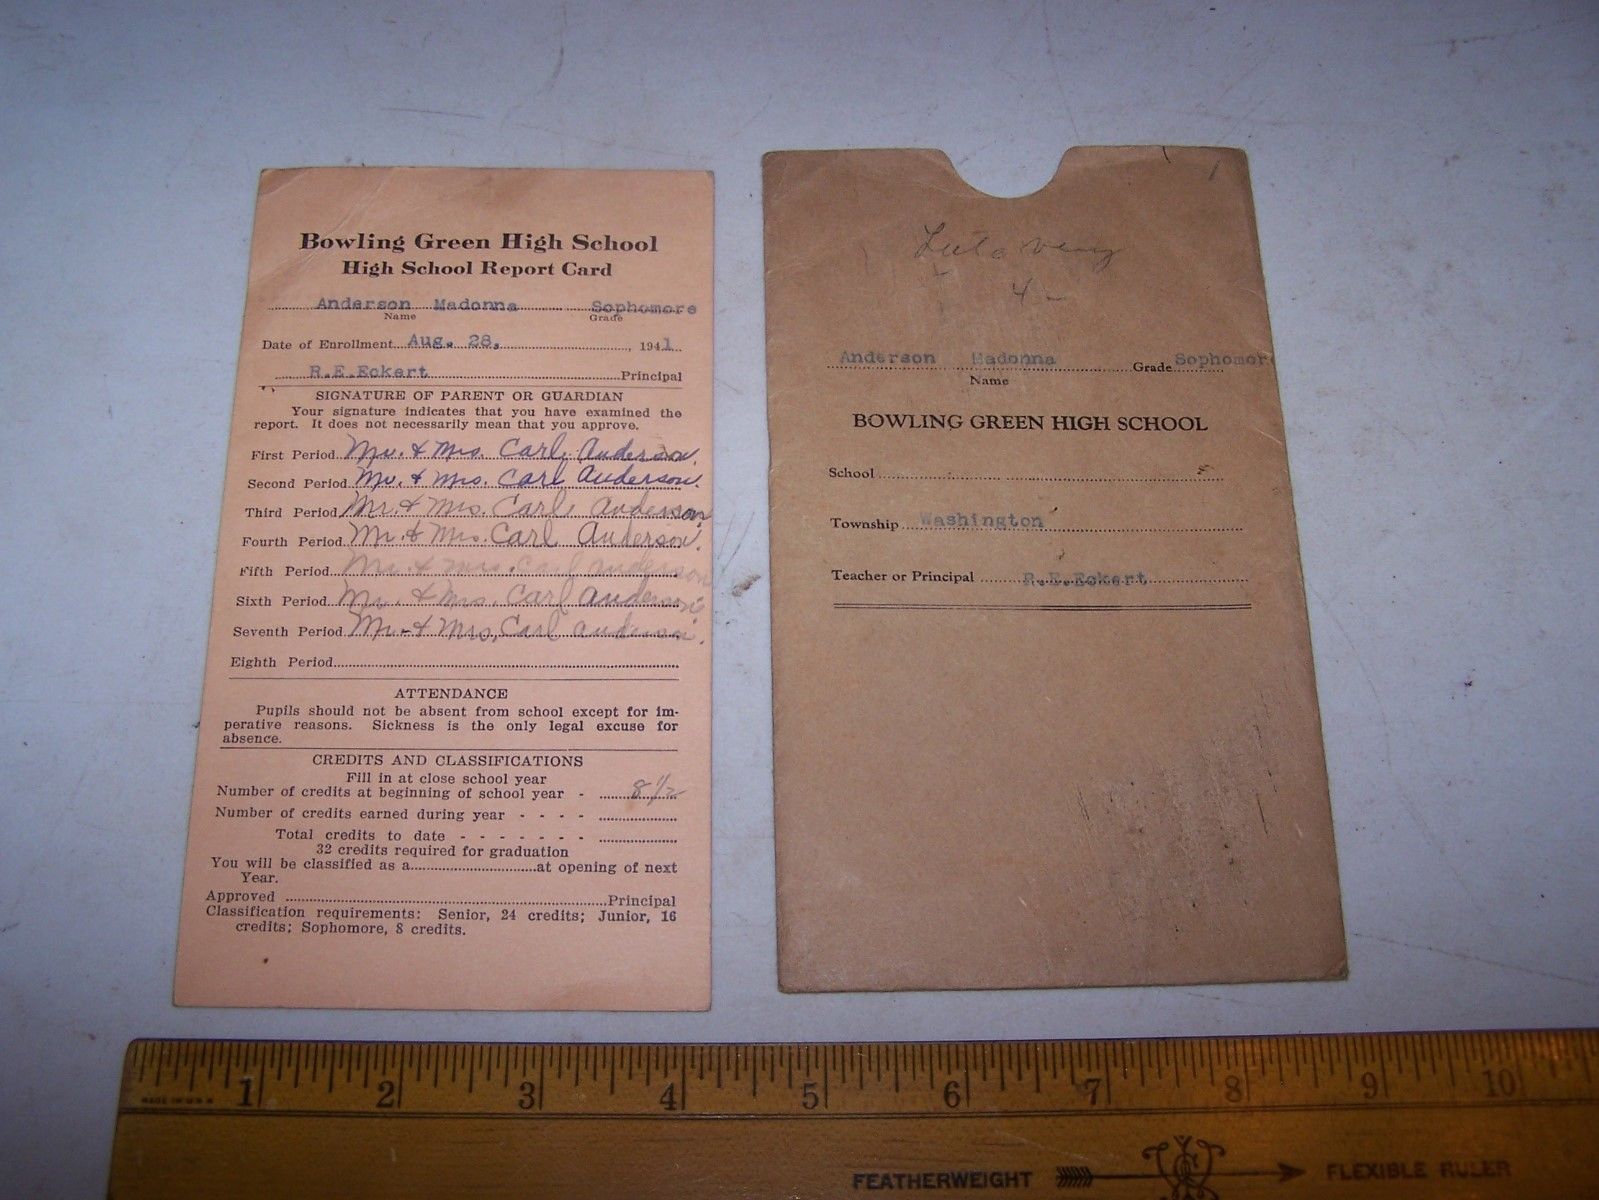 Bowling Green High School
High School Report Card
Anderson Madonna Sophomore
Name Grade
Date of Enrollment Aug. 28, 1941
R.E.Eckert Principal
SIGNATURE OF PARENT OR GUARDIAN
Your signature indicates that you have examined the
report. It does not necessarily mean that you approve.
First Period Mr. & Mrs. Carl Anderson.
Second Period Mr. & Mrs. Carl Anderson.
Third Period Mr. & Mrs. Carl Anderson
Fourth Period Mr. & Mrs. Carl Anderson.
Fifth Period Mr. & Mrs. Carl Anderson
Sixth Period Mr. & Mrs. Carl Anderson
Seventh Period Mr. & Mrs. Carl Anderson.
Eighth Period
ATTENDANCE
Pupils should not be absent from school except for im-
perative reasons. Sickness is the only legal excuse for
absence.
CREDITS AND CLASSIFICATIONS
Fill in at close school year
Number of credits at beginning of school year - 8 1/2
Number of credits earned during year - - - -
Total credits to date - - - - - - -
32 credits required for graduation
You will be classified as a at opening of next
Year.
Approved Principal
Classification requirements: Senior, 24 credits; Junior, 16
credits; Sophomore, 8 credits.
4 -
Anderson Madonna Grade Sophomore
Name
BOWLING GREEN HIGH SCHOOL
School
Township Washington
Teacher or Principal R.E.Eckert
1 2 3 4 5 6 7 8 9 10
MADE IN U.S.A
FEATHERWEIGHT FLEXIBLE RULER